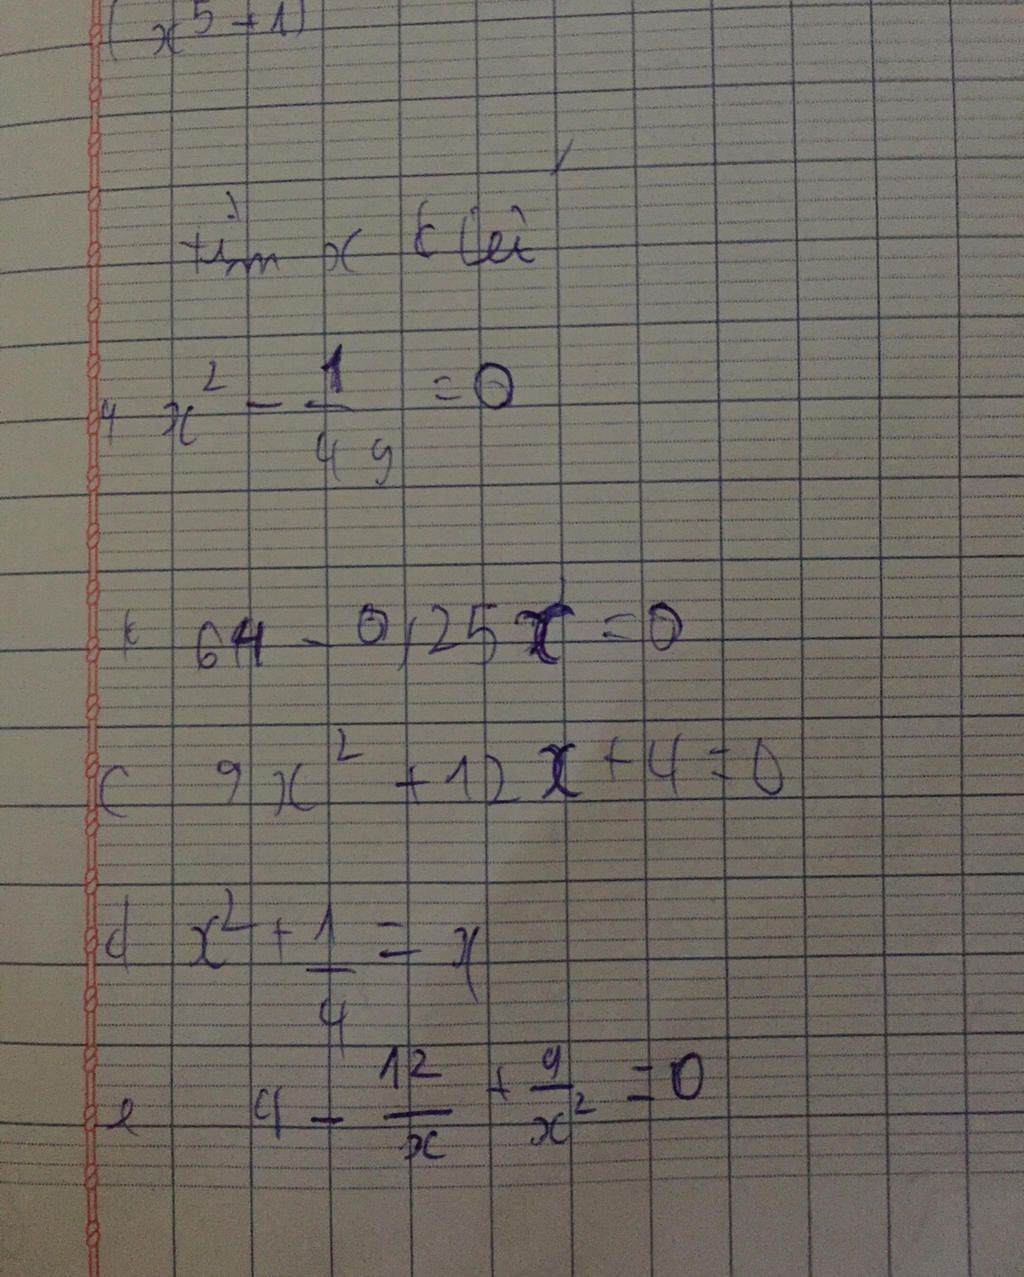 (x⁵ + 1)
tìm x biết
a x² - 1/49 = 0
b 64 - 0,25x = 0
c 9x² + 12x + 4 = 0
d x² + 1/4 = x
e 4 - 12/x + 9/x² = 0